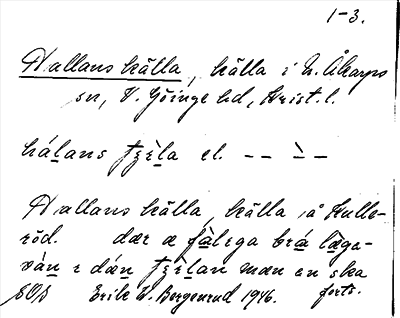 1-3.
Hallans källa, källa i N. Åkarps
sn, V. Göinge hd, Krist. l.
hálans tzὲla el. – – ̀ –
Hallans källa, källa å Kulle-
röd. dær æ fàlega brá lὲga-
ván i dán tzὲlan mæn en ska
SOÅ Erik W. Bergenrud 1946. forts.